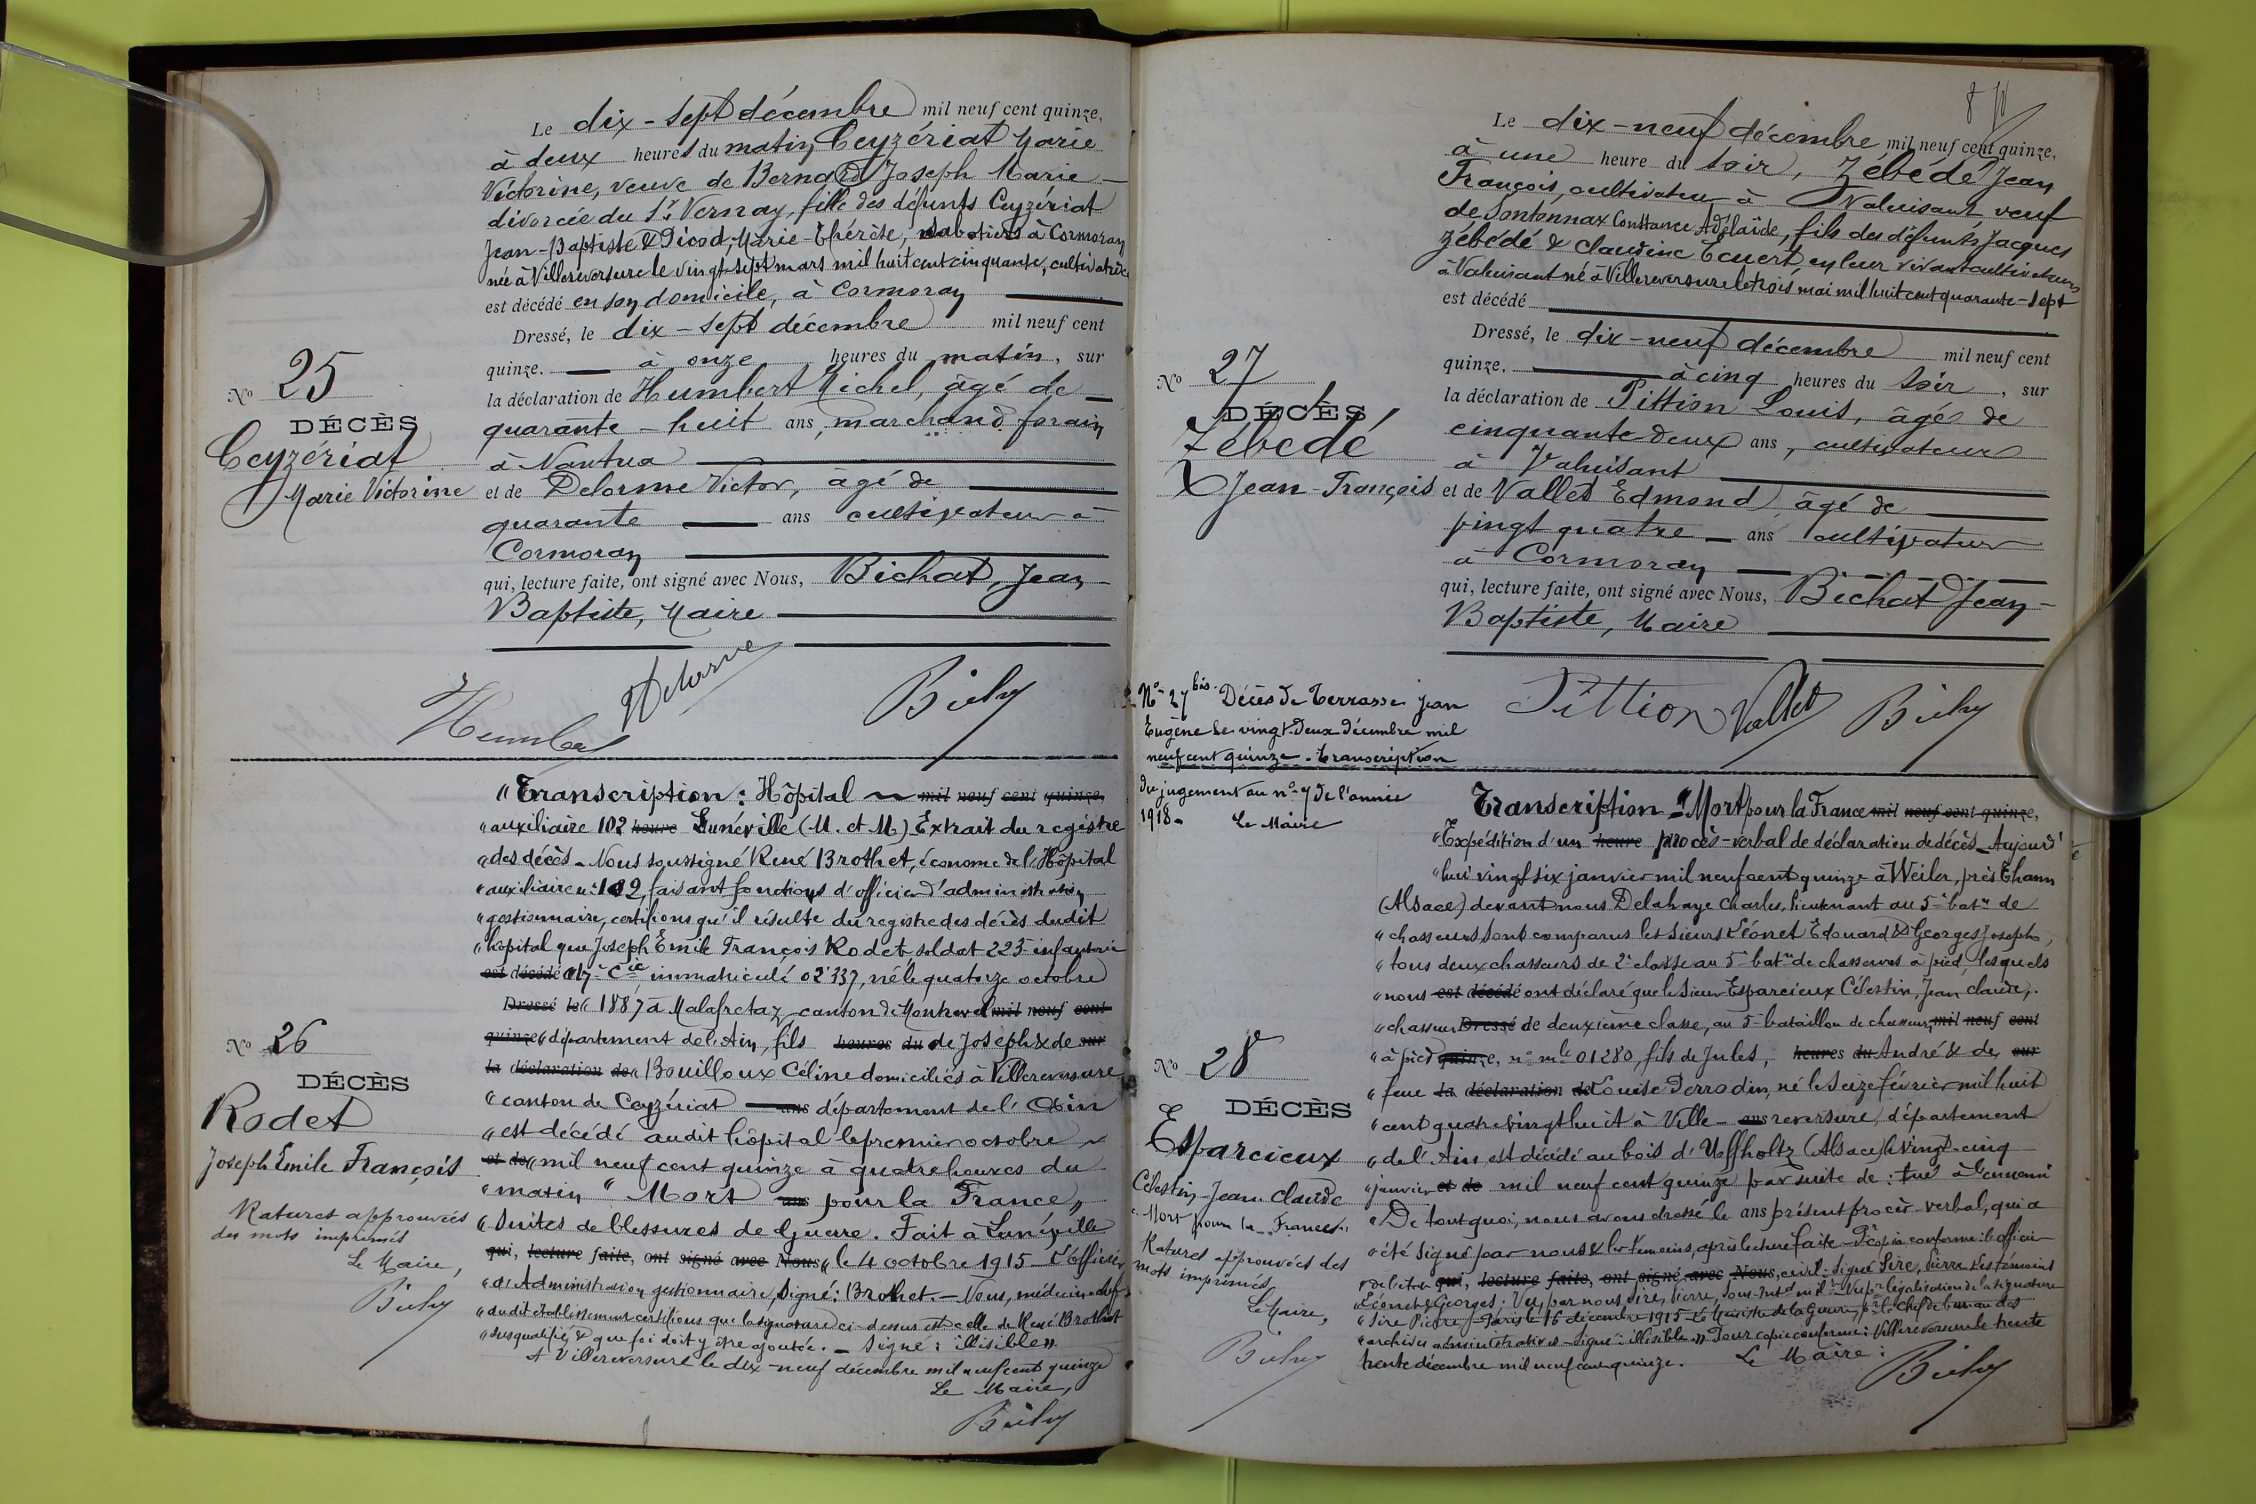 Le dix-sept décembre mil neuf cent quinze,
à deux heures du matin, Ceyzériat Marie
Victorine, veuve de Bernard Joseph Marie
divorcée du Sr Vernay, fille des défunts Ceyzériat
Jean-Baptiste & Dicod, Marie-Thérèse, sabotiers à Cormoran
née à Villereversure le vingt-sept mars mil huit cent cinquante, cultivatrice
est décédé en son domicile, à Cormoran
Dressé, le dix-sept décembre mil neuf cent
quinze. à onze heures du matin, sur
la déclaration de Humbert Michel, âgé de
quarante-huit ans, marchand forain
à Nantua
et de Delorme Victor, âgé de
quarante ans cultivateur à
Cormoran
qui, lecture faite, ont signé avec Nous, Bichat, Jean
Baptiste, Maire
No 25
DÉCÈS
Ceyzériat
Marie Victorine
Humbert Delorme
"Transcription : Hôpital mil neuf cent quinze,
"auxiliaire 102 heure Lunéville (M. et M) Extrait du registre
"des décès - Nous soussigné René Brothet, économe de l'Hôpital
"auxiliaire n° 102, faisant fonctions d'officier d'administration
"gestionnaire, certifions qu'il résulte du registre des décès dudit
"hôpital que Joseph Emile François Rodet, soldat 223 infanterie
est décédé "17e Cie, immatriculé 02337, né le quatorze octobre
Dressé le "1887 à Malafretaz canton de Montrevel mil neuf cent
quinze "département de l'Ain, fils heures du de Joseph & de sur
la déclaration de "Bouilloux Céline domiciliés à Villereversure
"canton de Ceyzériat ans département de l'Ain
"est décédé audit hôpital le premier octobre
et de "mil neuf cent quinze à quatre heures du
"matin "Mort ans pour la France"
"Suites de blessures de Guerre. Fait à Lunéville
qui, lecture faite, ont signé avec Nous "le 4 octobre 1915 - L'officier
"d'Administration gestionnaire, signé : Brothet. - Nous, médecin-chef
"dudit établissement certifions que la signature ci-dessus est celle de René Brothet
"susqualifié, & que foi doit y être ajoutée. - Signé : illisible".
A Villereversure le dix-neuf décembre mil neuf cent quinze
Le Maire,
No 26
DÉCÈS
Rodet
Joseph Emile François
Ratures approuvées
des mots imprimés
Le Maire,
8
Le dix-neuf décembre mil neuf cent quinze,
à une heure du soir, Zébédé Jean
François, cultivateur à Valuisant veuf
de Sontonnax Constance Adélaïde, fils des défunts Jacques
Zébédé & Claudine Ecuert, en leur vivant cultivateurs
à Valuisant né à Villereversure le trois mai mil huit cent quarante-sept
est décédé
Dressé, le dix-neuf décembre mil neuf cent
quinze. à cinq heures du soir, sur
la déclaration de Pittion Louis, âgé de
cinquante-deux ans, cultivateur
à Valuisant
et de Vallet Edmond, âgé de
vingt quatre ans cultivateur
à Cormoran
qui, lecture faite, ont signé avec Nous, Bichat Jean
Baptiste, Maire
No 27
DÉCÈS
Zébédé
Jean-François
Pittion Vallet
No 27 bis. Décès de Terrasse Jean
Eugène le vingt-deux décembre mil
neuf cent quinze. Transcription
du jugement au n° 7 de l'année
1918. Le Maire
Transcription - "Mort pour la France mil neuf cent quinze,
"Expédition d'un heure procès-verbal de déclaration de décès - Aujourd'
"hui vingt six janvier mil neuf cent quinze à Weiler, près Thann
(Alsace) devant nous Delahaye Charles, lieutenant au 5e bat.n de
"chasseurs sont comparus les sieurs Léonet Edouard & Georges Joseph,
"tous deux chasseurs de 2e classe au 5e bat.n de chasseurs à pied, lesquels
"nous est décédé ont déclaré que le sieur Esparcieux Célestin, Jean Claude,
"chasseur Dressé de deuxième classe, au 5e bataillon de chasseurs, mil neuf cent
"à pied quinze, n° mle 01280, fils de Jules, heures du André & de sur
"feue la déclaration de Louise Perrodin, né le seize février mil huit
"cent quatre vingt huit à Ville- ans reversure, département
"de l'Ain est décédé au bois d'Uffholtz (Alsace) le vingt-cinq
"janvier et de mil neuf cent quinze par suite de : tué à l'ennemi
"De tout quoi, nous avons dressé le ans présent procès-verbal, qui a
"été signé par nous & les témoins, après lecture faite - P. copie conforme : l'officier
"de l'état qui, lecture faite, ont signé avec Nous, civil : signé Sire, Pierre. Les témoins
"Léonet & Georges ; Vu, par nous Sire, Pierre, sous-Intd mil. - Vu pr légalisation de la signature
"Sire Pierre - Paris le 16 décembre 1915 - Le Ministre de la Guerre, pr le Chef de bureau des
"archives administratives - Signé : illisible" Pour copie conforme : Villereversure le trente
trente décembre mil neuf cent quinze. Le Maire :
No 28
DÉCÈS
Esparcieux
Célestin-Jean-Claude
"Mort pour la France"
Ratures approuvées des
mots imprimés
Le Maire,